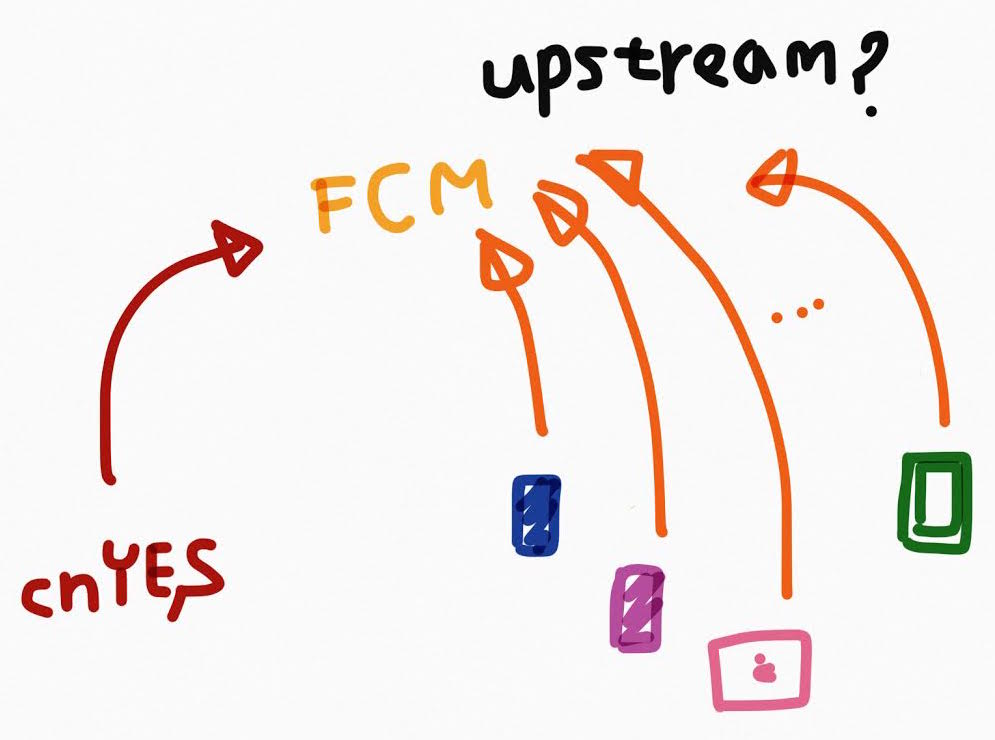 upstream?
FCM
...
cnYES